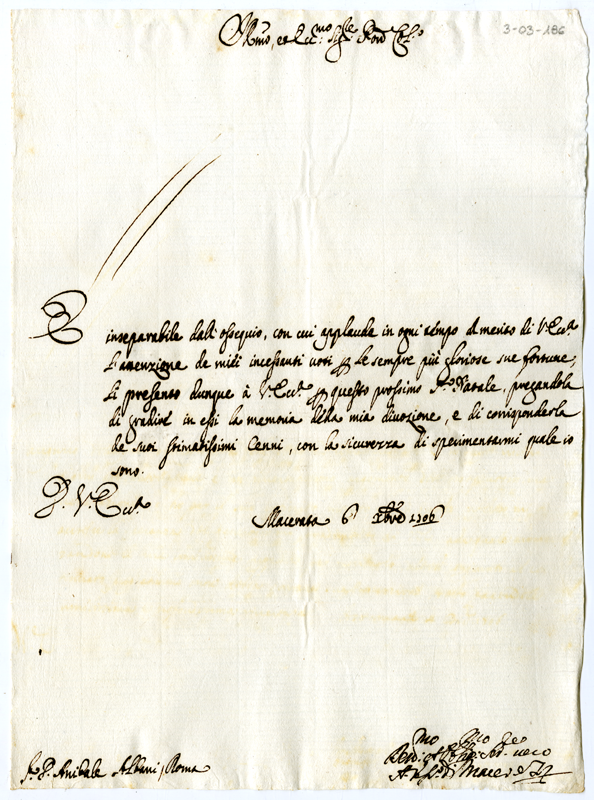 3-03-186
Illmo, et Ecc.mo Sig.re Pron Col.mo
È inseparabile dall'ossequio, con cui applaude in ogni tempo al merito di V. Ecc.a
l'attenzione de miei incessanti voti per le sempre più gloriose sue fortune;
li presento dunque à V. Ecc.a per questo prossimo S.to Natale, pregandola
di gradire in essi la memoria della mia divozione, e di corrisponderla
de suoi stimatissimi Cenni, con la sicurezza di sperimentarmi quale io
sono.
D. V. Ecc.a
Macerata 6 Xbre 1706
Devmo
Macerata
S.r D. Anibale Albani, Roma